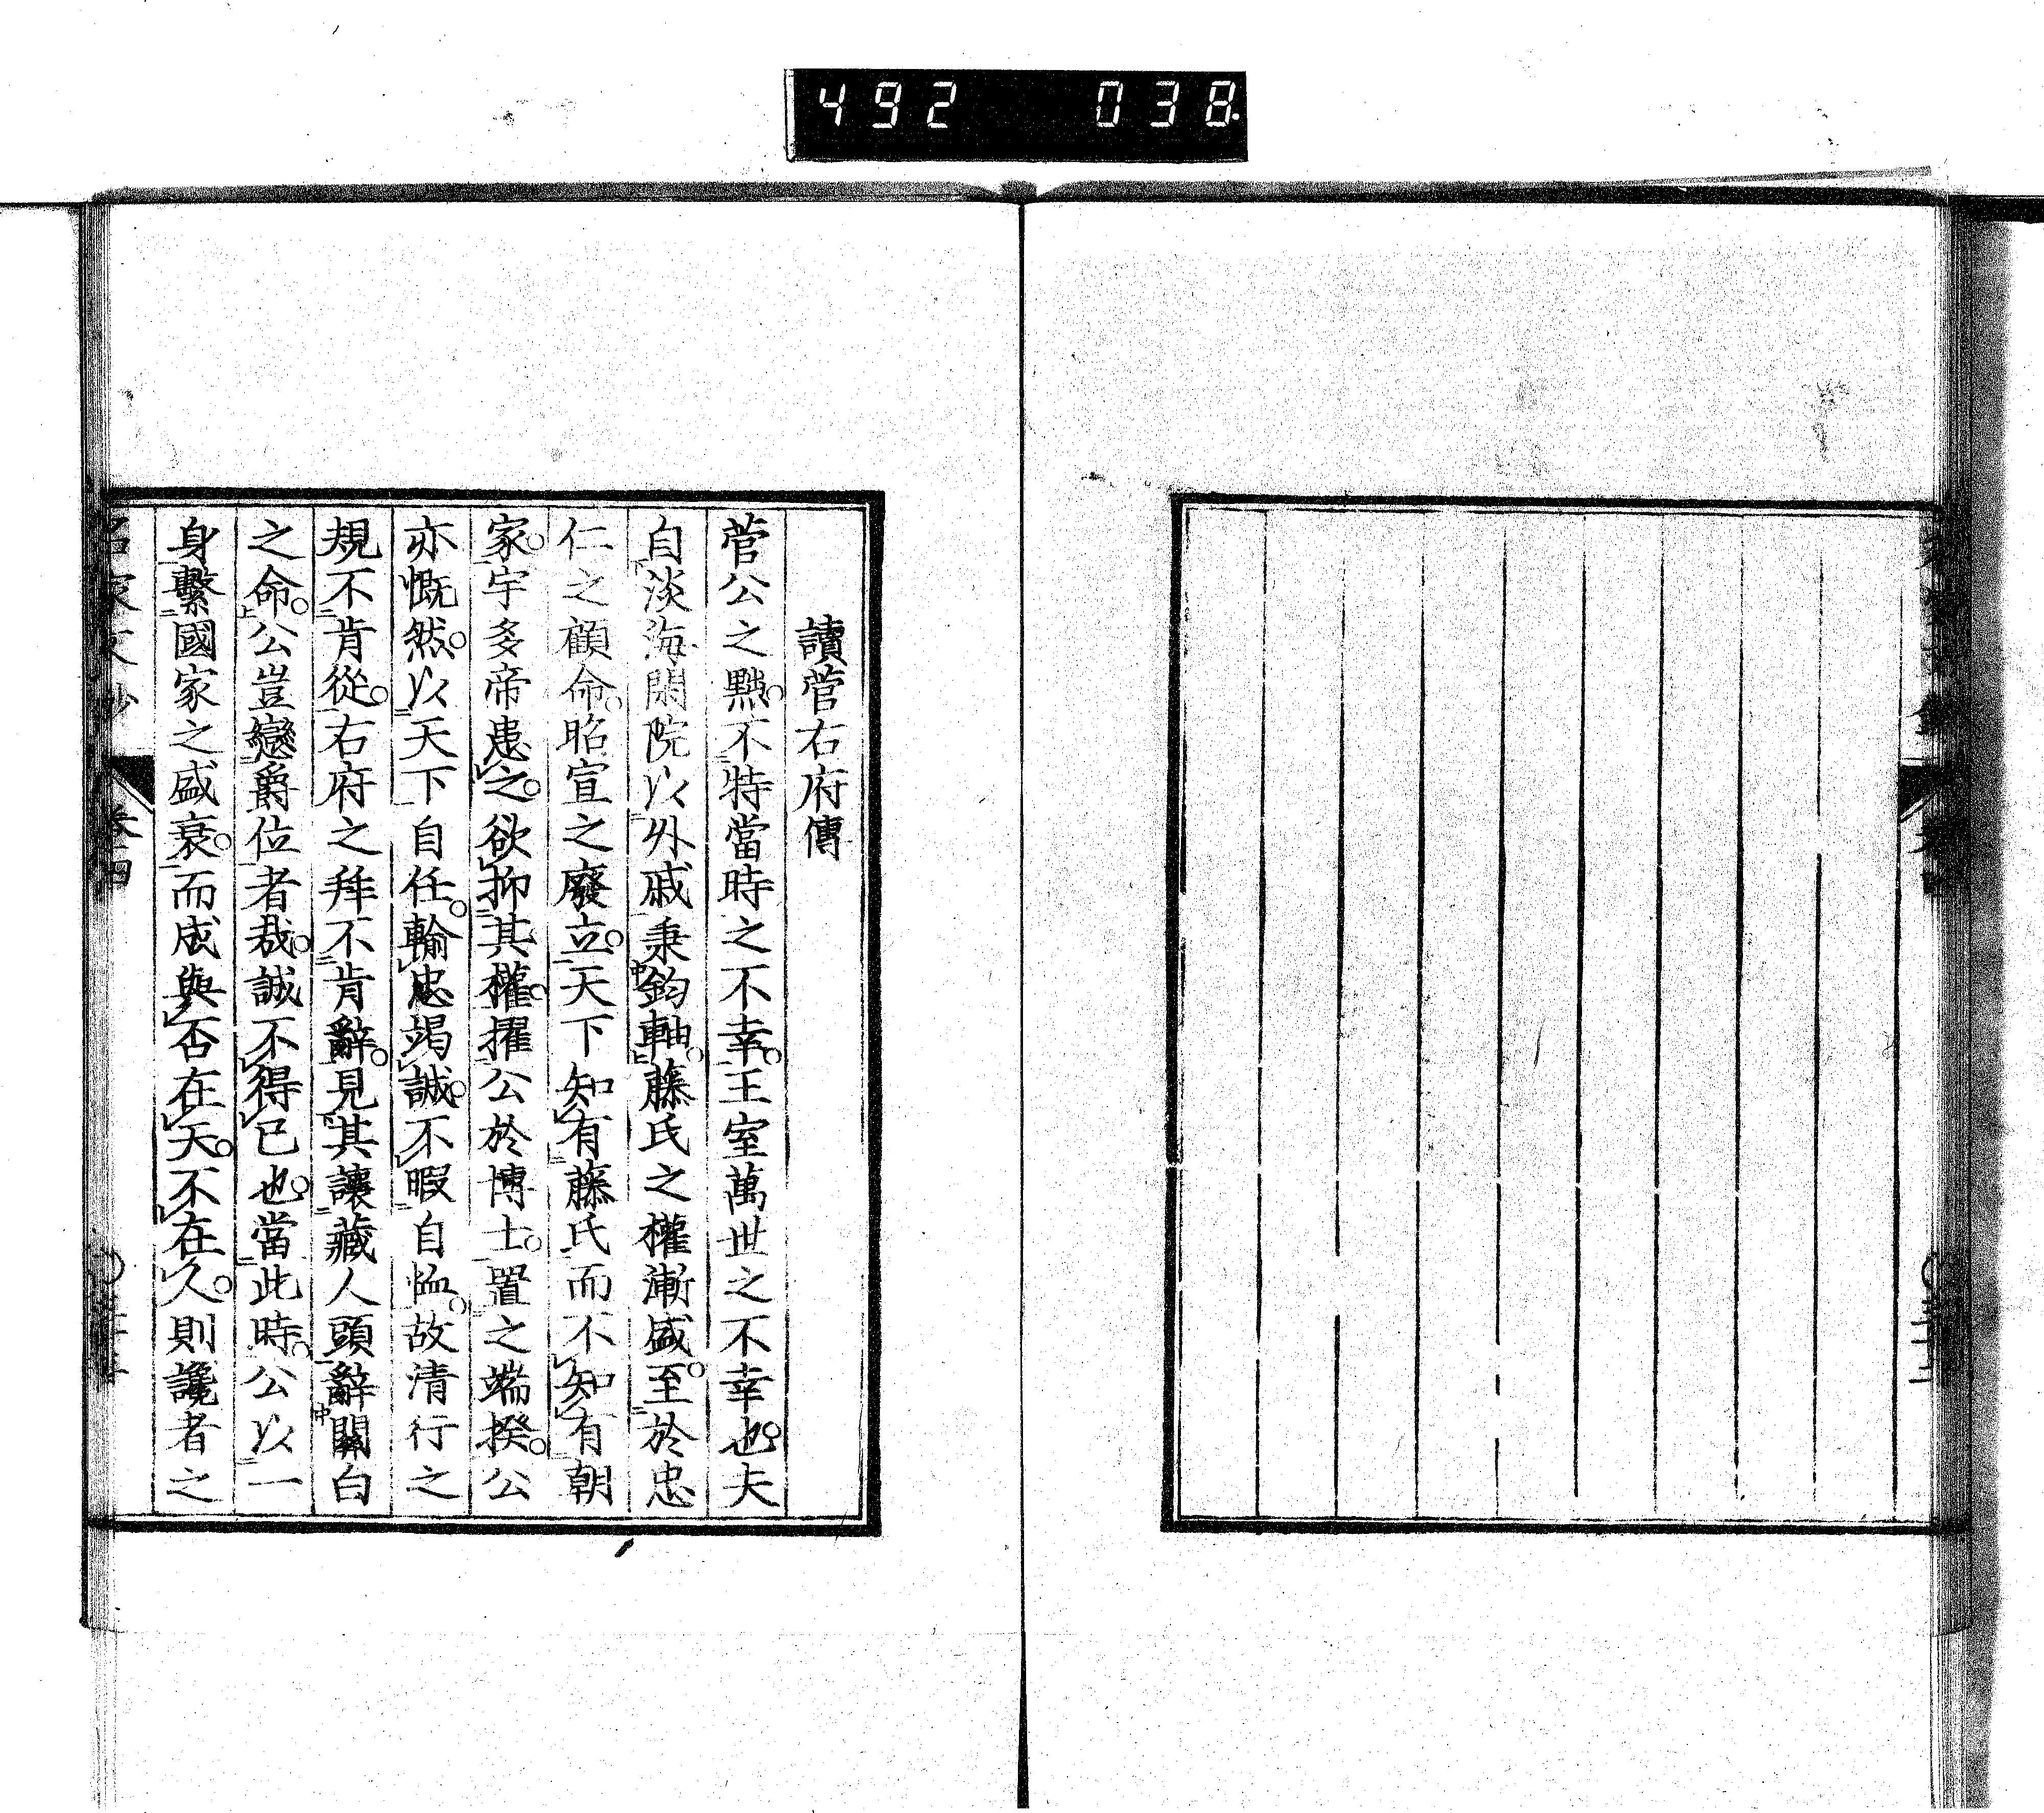 492 038
讀菅右府傳
菅公之黜。不特當時之不幸。王室萬世之不幸也。夫
自淡海閑院以外戚秉鈞軸。藤氏之權漸盛。至於忠
仁之顧命。昭宣之廢立。天下知有藤氏而不知有朝
家。宇多帝患之。欲抑其權。擢公於博士。置之端揆。公
亦慨然。以天下自任。輸忠竭誠。不暇自恤。故清行之
規不肯從。右府之拜不肯辭。見其讓藏人頭辭關白
之命。公豈戀爵位者哉。誠不得已也。當此時。公以一
身繫國家之盛衰。而成與否在天。不在久。則讒者之
名家文抄 卷四